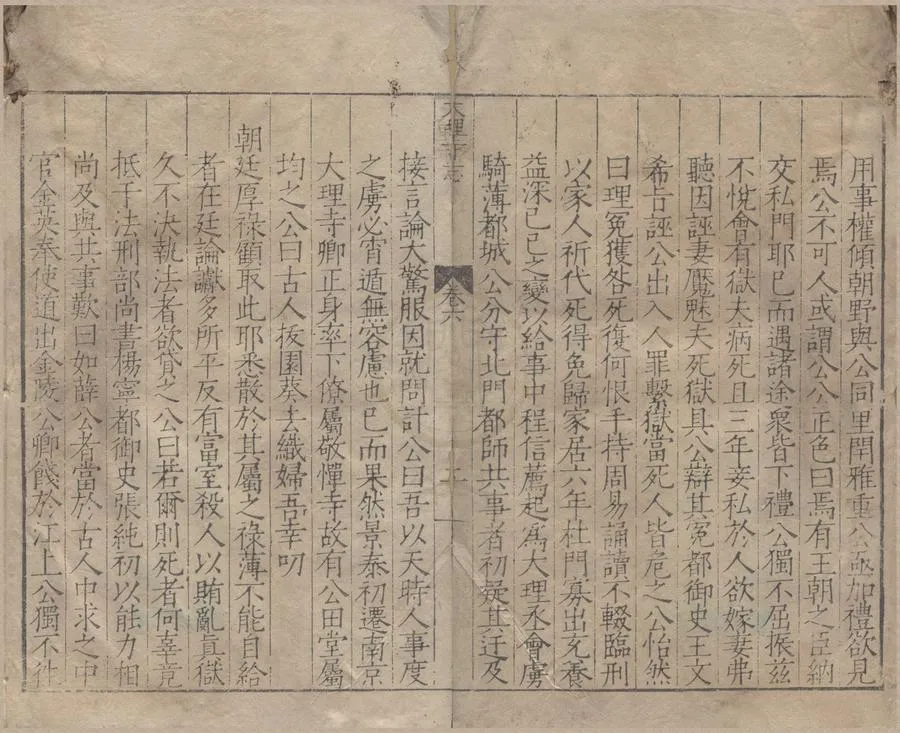 用事權傾朝野與公同里閈雅重公亟加禮欲見
焉公不可人或謂公公正色曰焉有王朝之臣納
交私門耶已而遇諸途衆皆下禮公獨不屈振兹
不悅會有獄夫病死且三年妾私於人欲嫁妻弗
聽因誣妻魘魅夫死獄具公辯其冤都御史王文
希旨誣公出入人罪繫獄當死人皆危之公怡然
曰理冤獲咎死復何恨手持周易誦讀不輟臨刑
以家人祈代死得免歸家居六年杜門寡出充養
益深已巳之變以給事中程信薦起爲大理丞會虜
騎薄都城公分守北門都師共事者初疑其迂及
大理寺志
卷六
十
接言論大驚服因就問計公曰吾以天時人事度
之虜必宵遁無容慮也已而果然景泰初遷南京
大理寺卿正身率下僚屬敬憚寺故有公田堂屬
均之公曰古人拔園葵去織婦吾幸叨
朝廷厚祿顧取此耶悉散於其屬之祿薄不能自給
者在廷論讞多所平反有富室殺人以賄亂真獄
久不決執法者欲貸之公曰若爾則死者何辜竟
抵于法刑部尚書楊寧都御史張純初以能力相
尚及與共事歎曰如薛公者當於古人中求之中
官金英奉使道出金陵公卿餞於江上公獨不徃